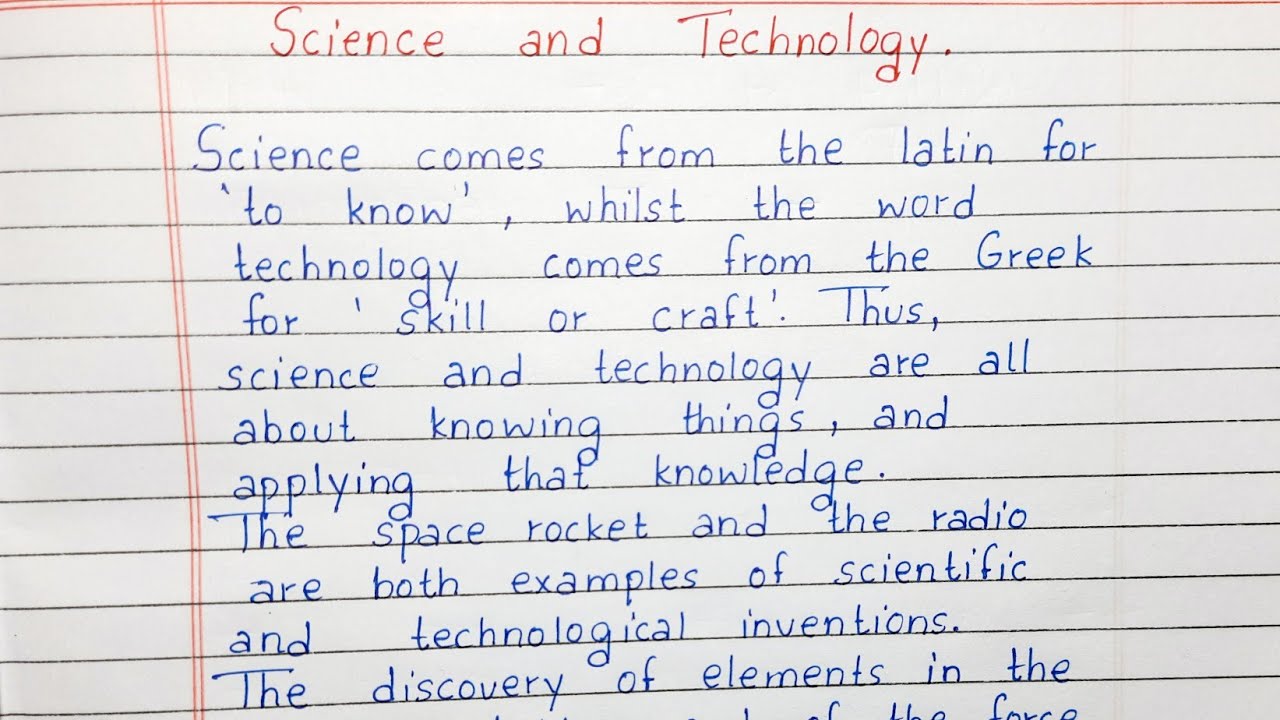 Science and Technology.
Science comes from the latin for
'to know', whilst the word
technology comes from the Greek
for 'skill or craft'. Thus,
science and technology are all
about knowing things, and
applying that knowledge.
The space rocket and the radio
are both examples of scientific
and technological inventions.
The discovery of elements in the
of the force